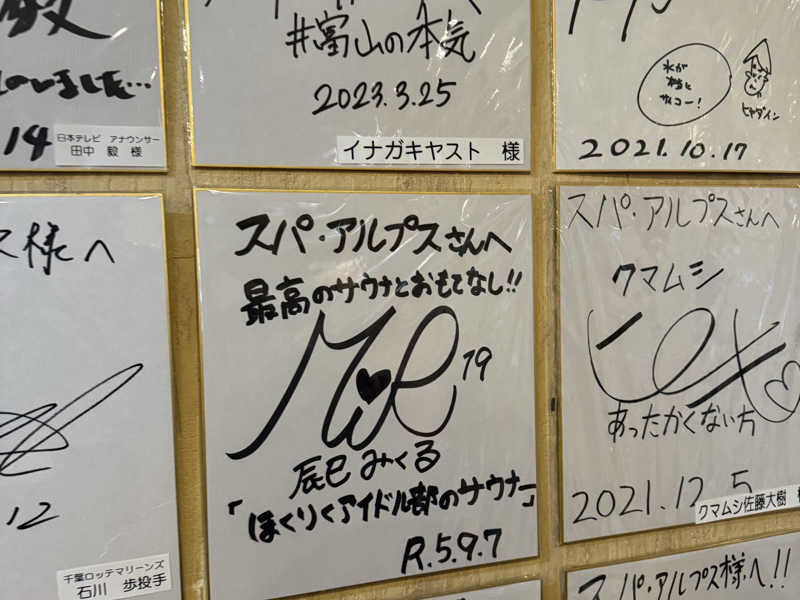 いました…
14
日本テレビ アナウンサー
田中 毅 様
#富山の本気
2023.3.25
イナガキヤスト 様
水が
サイコー!
ヒャダイン
2021.10.17
様へ
12
千葉ロッテマリーンズ
石川 歩投手
スパ・アルプスさんへ
最高のサウナとおもてなし!!
19
辰巳みくる
「ほくりくアイドル部のサウナー」
R.5.9.7
スパ・アルプスさんへ
クマムシ
あったかくない方
2021.12.5
クマムシ佐藤大樹
スパ・アルプス様へ!!